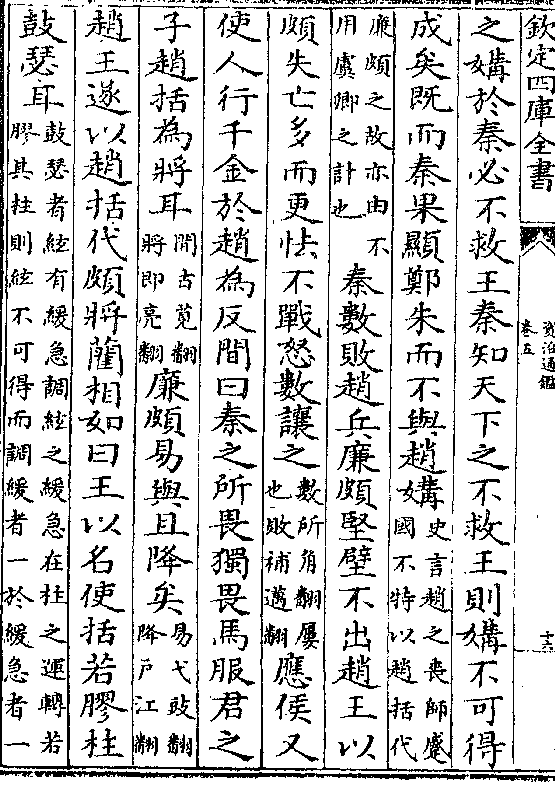 欽定四庫全書
資治通鑑
卷五
十六
之媾於秦必不救王秦知天下之不救王則媾不可得
成矣既而秦果顯鄭朱而不與趙媾
史言趙之喪師蹙
國不特以趙括代
廉頗之故亦由不
用虞卿之計也
秦數敗趙兵廉頗堅壁不出趙王以
頗失亡多而更怯不戰怒數讓之
數所角翻屢
也敗補邁翻
應侯又
使人行千金於趙為反間曰秦之所畏獨畏馬服君之
子趙括為將耳
間古莧翻
將即亮翻
廉頗易與且降矣
易弋豉翻
降戶江翻
趙王遂以趙括代頗將藺相如曰王以名使括若膠柱
鼓瑟耳
鼓瑟者絃有緩急調絃之緩急在柱之運轉若
膠其柱則絃不可得而調緩者一於緩急者一